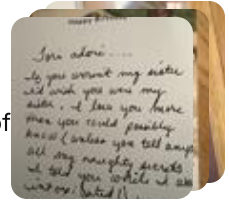 of
Tori adori.....
If you weren't my sister
I'd wish you were my
sister. I love you more
than you could possibly
know (unless you tell any
all my naughty secrets
I told you while I